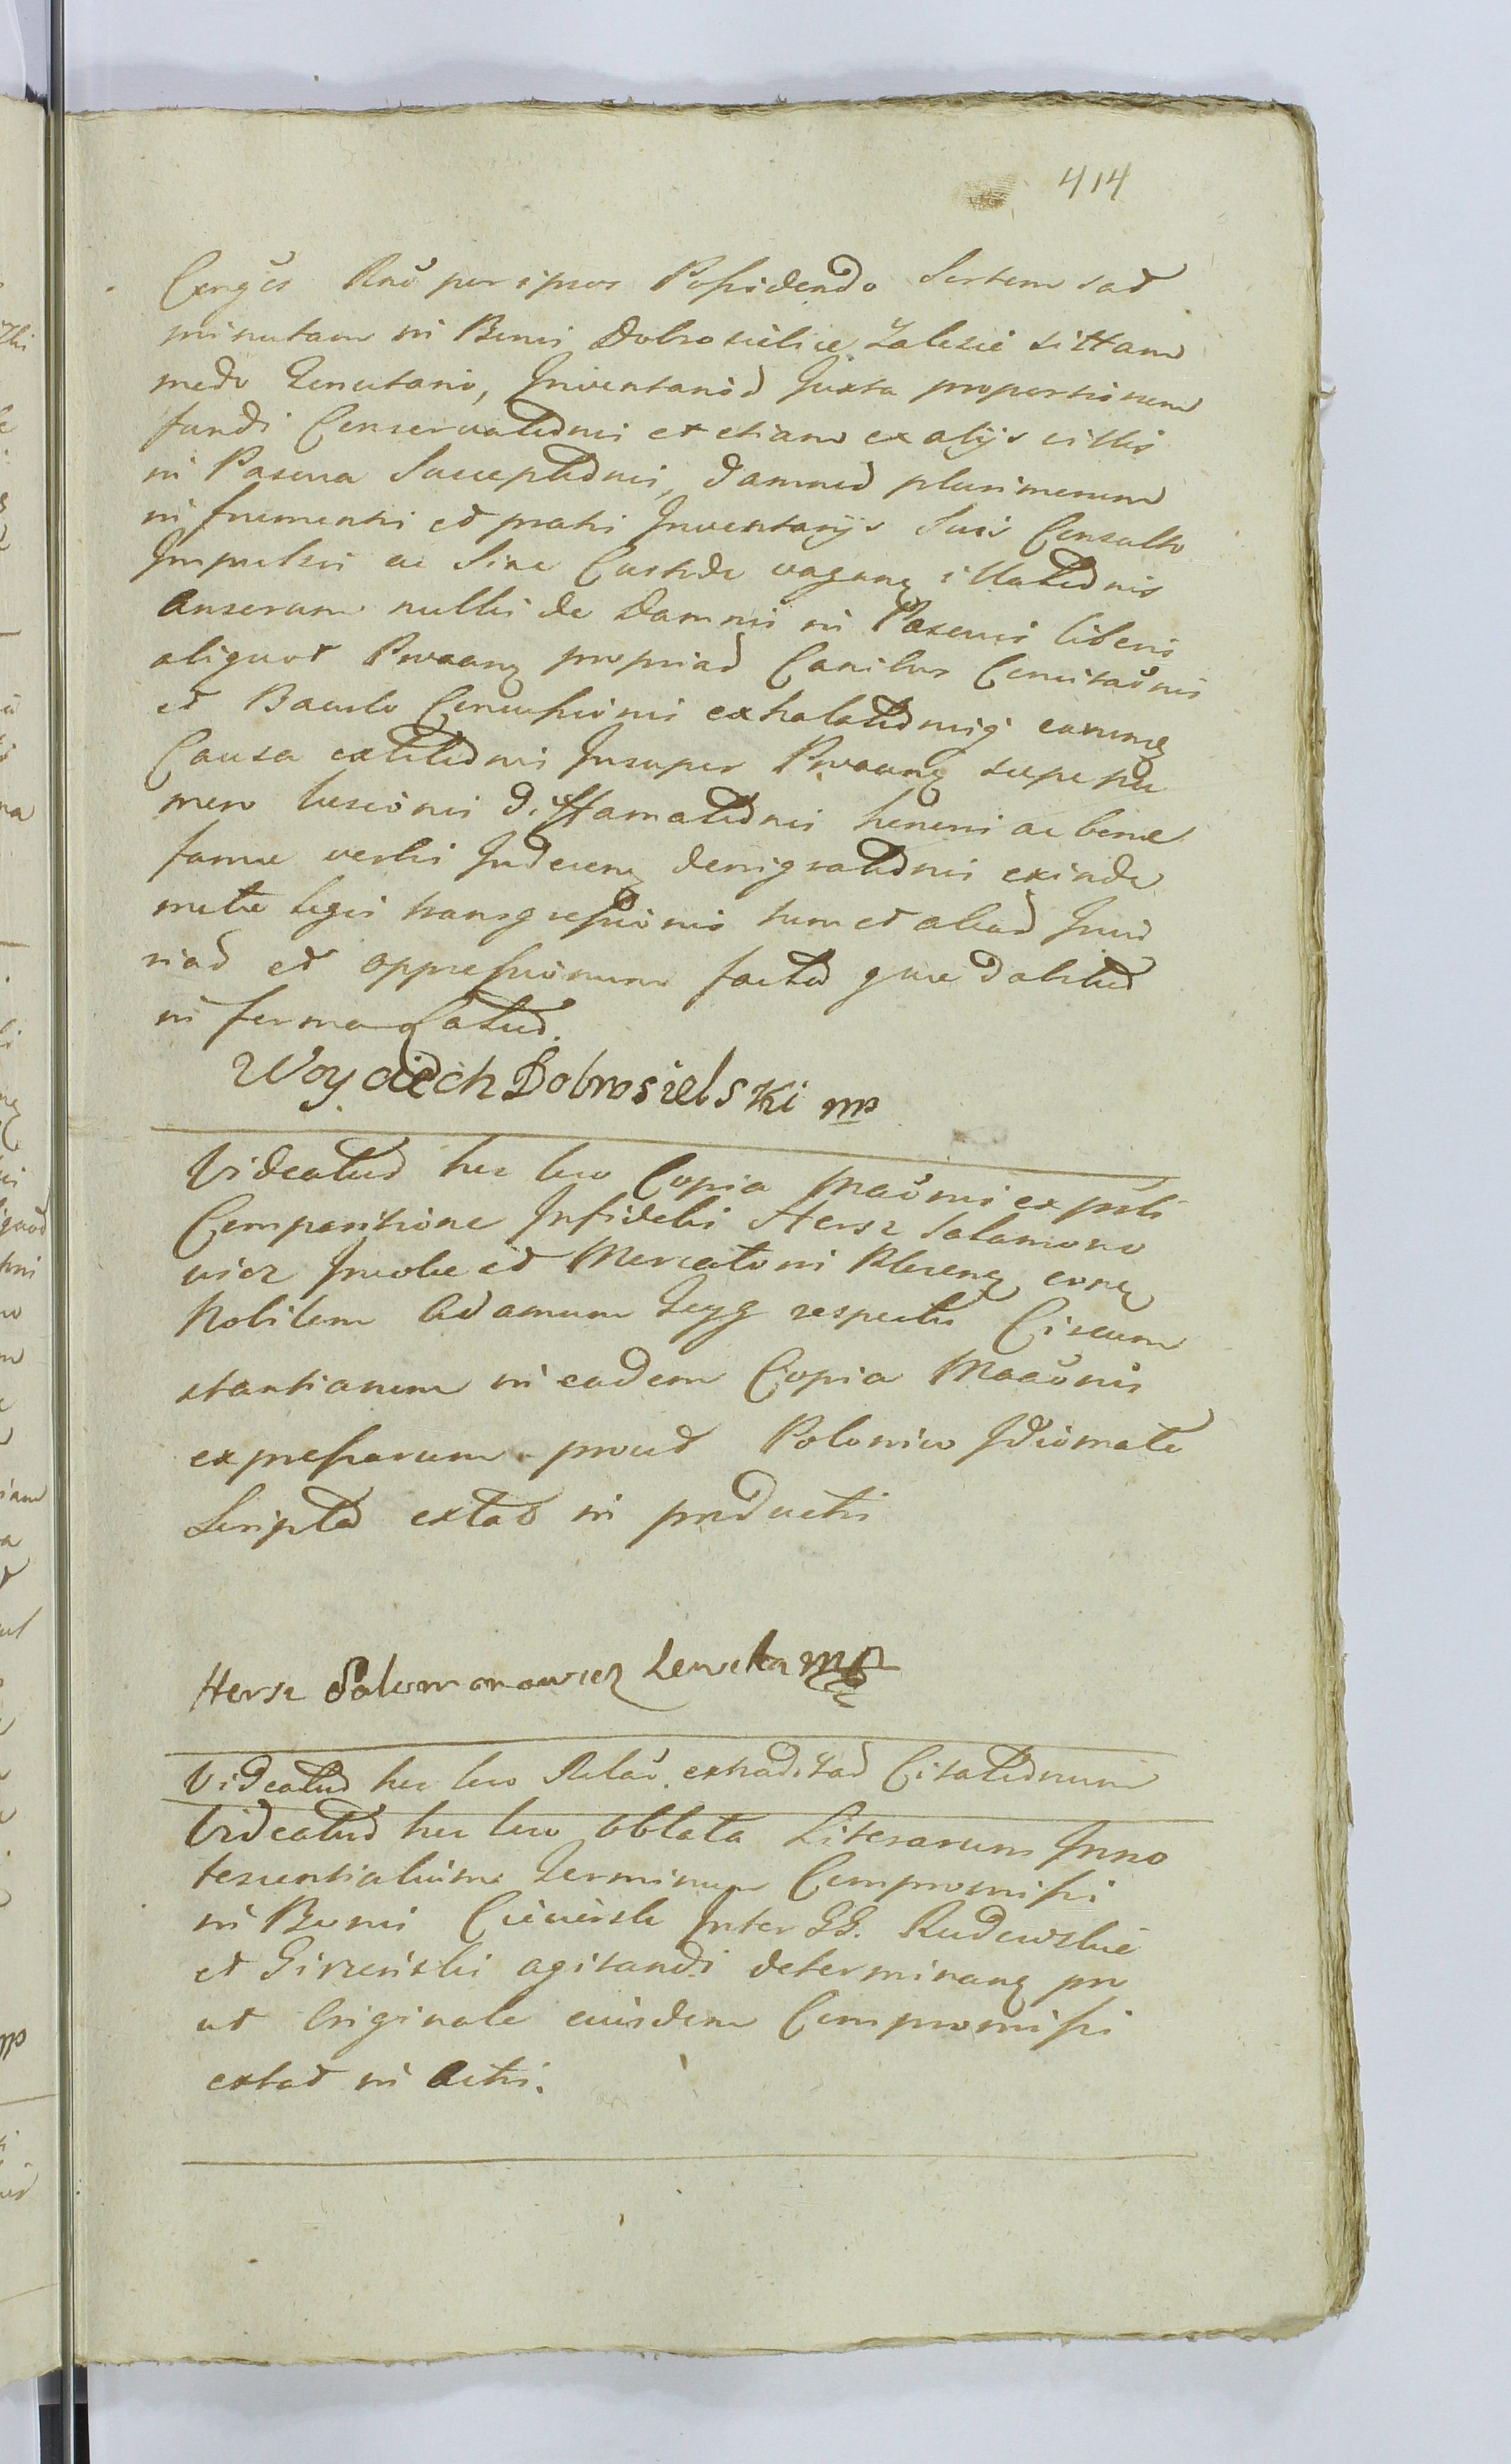 414
Congěs Rnō per ipsos Possidendo Sortem sat
minutam in Bonis Dobrosielice Zalesie sittam
modo Tenutario, Inventariorũ Juxta proportionem
fundi Conservationis et etiam ex alijs villis
in Pascua Susceptionis, damnorũ plurimorum
in frumentis et pratis Inventarijs Suis Consulto
Impulsis ac Sine Custode vagan͂ illationis
Anserum nullis de Damnis in Pascuis liberis
aliquot Pnoan͂ propriar Canibus Concitaōnis
et Baculo Concussionis exhalationisq̨ earum
Causa extitionis Insuper Pnoan͂ saepe nu
mero laesionis diffamationis honoris ac bonae
famae verbis Indecen͂ denigrationis exinde
metae legis transgressionis tum et aliar Inju
riar et oppressionum factor quae dabitur
in forma Latius.
Woyciech Dobrosielski mp
Videatur hic loco Copia Maōnis ex parte
Comparitione Infidelis Hersz Salamono
wicz Incolae et Mercatoris Plocen͂ con͂
Nobilem Adamum Zeyg respectu Circum
stantiarum in eadem Copia Maaōnis
expressarum prout Polonico Idiomate
Scripta extat in productis
Hersz Salomonowicz Lewita mp
Videatur hic loco Relaō extraditar Citationum
Videatur hic loco Oblata Literarum Inno
tescentialium Terminum Compromissi
in Bonis Ciciersk Inter GG. Rudowskie
et Girzeński agitandi determinan͂ pro
ut Originale eiusdem Compromissi
extat in Actis.